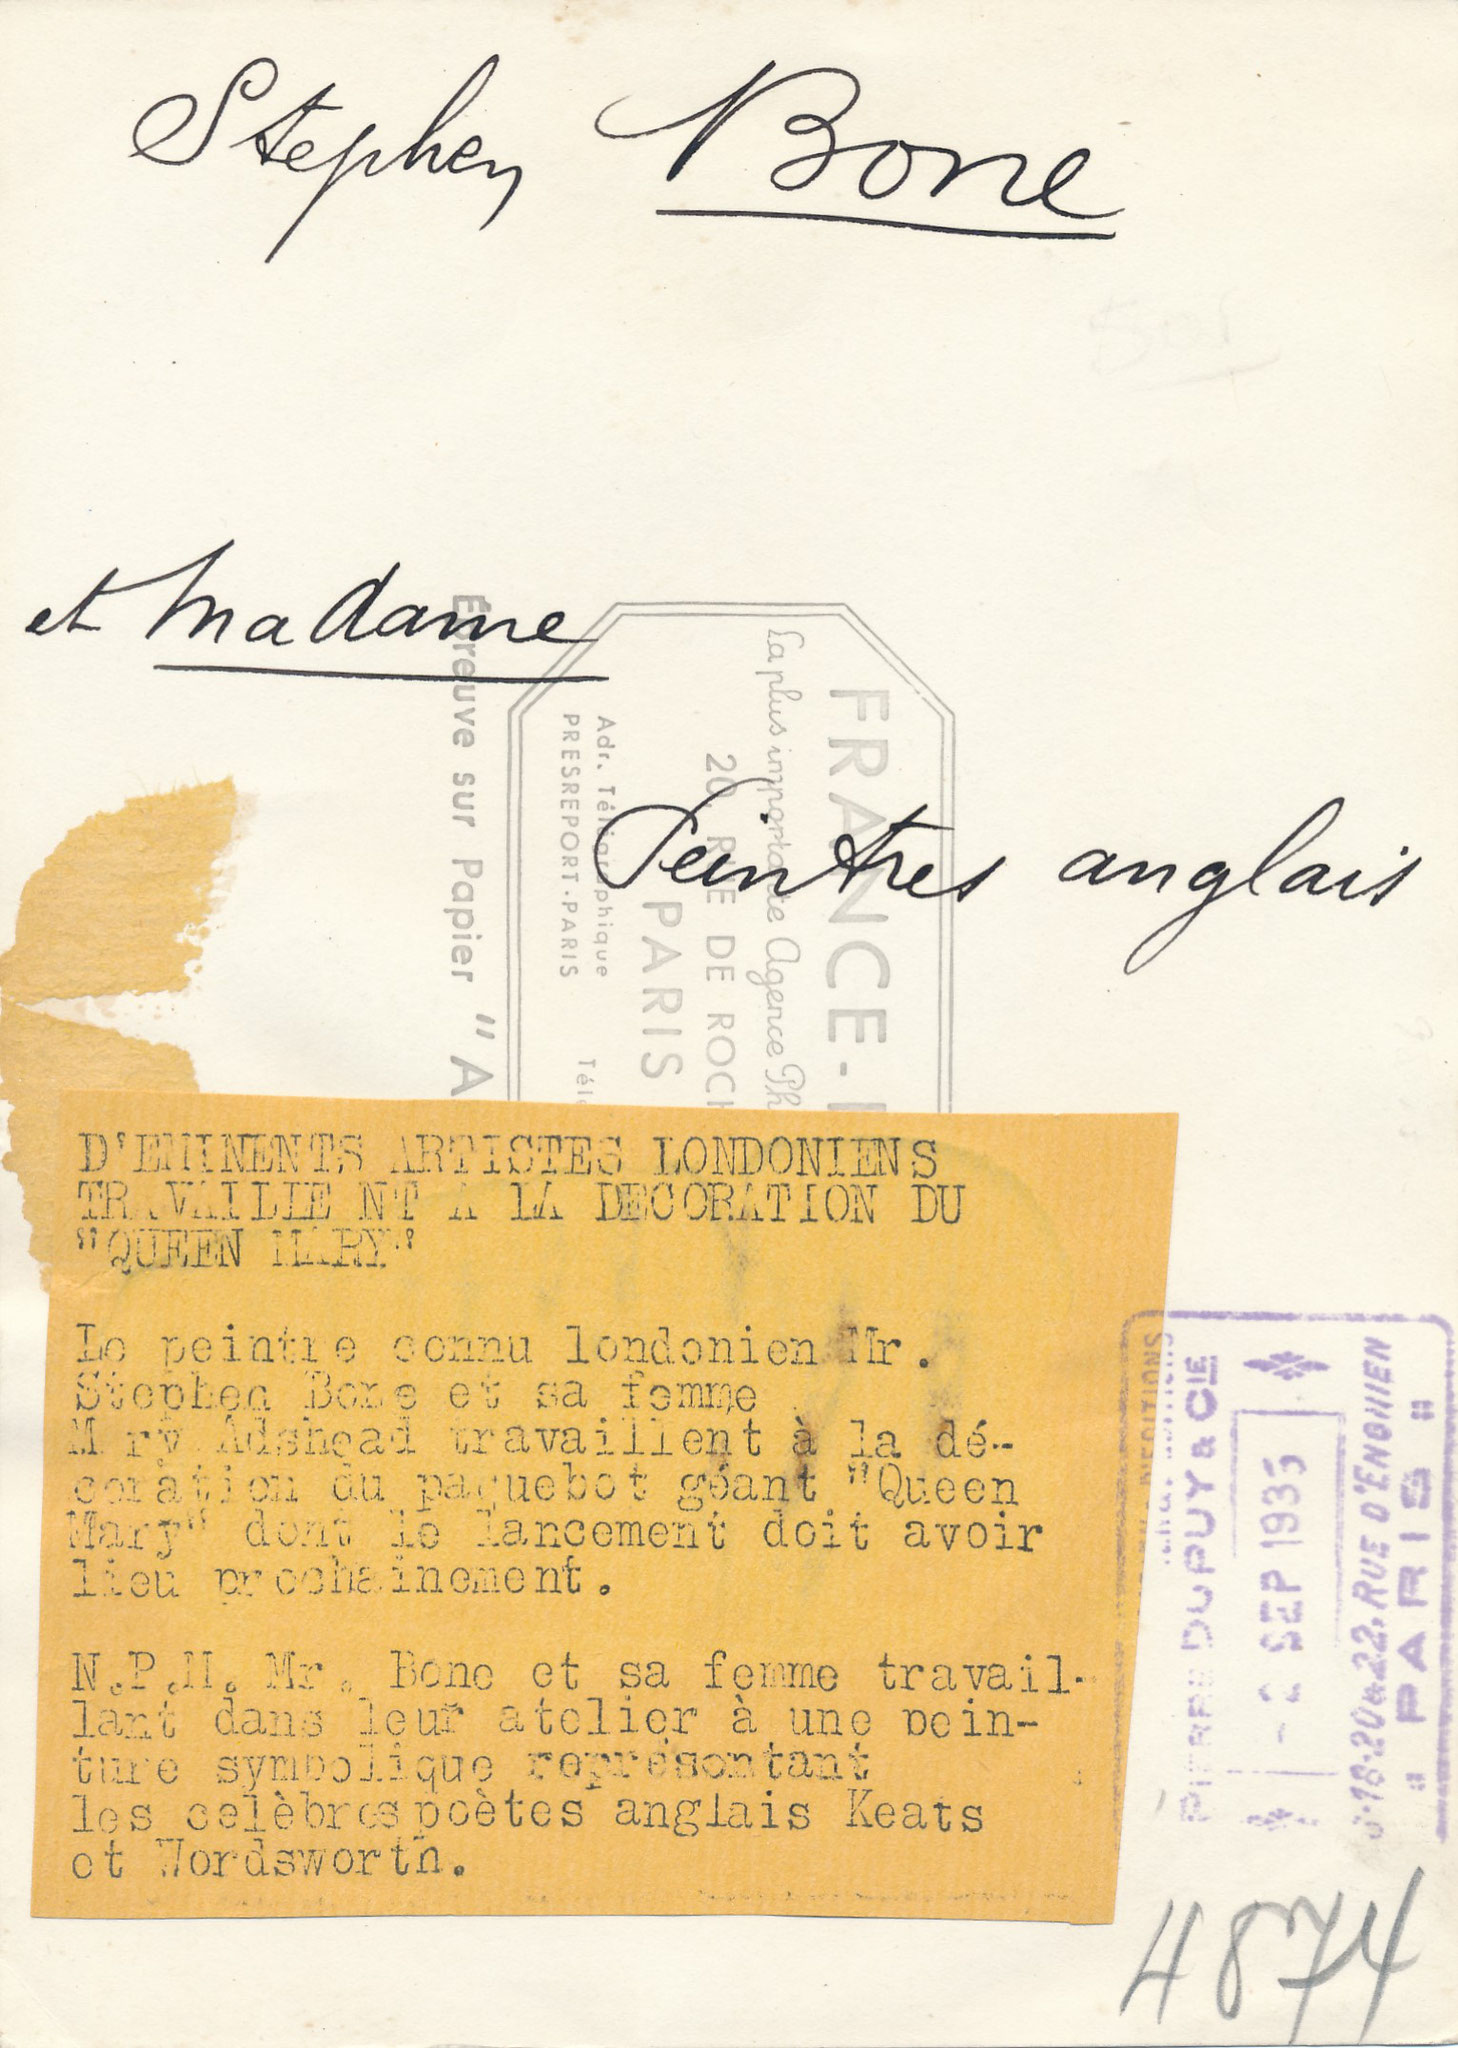 Stephen Bone
et Madame
Peintres anglais
Épreuve sur Papier "A
FRANCE-
La plus importante Agence Ph
20, RUE DE ROCH
PARIS
Adr. Télégraphique
PRESREPORT-PARIS
Télé
D'EMINENTS ARTISTES LONDONIENS
TRAVAILLENT A LA DECORATION DU
"QUEEN MARY"
Le peintre connu londonien Mr.
Stephen Bone et sa femme
Mary Adshead travaillent à la dé-
coration du paquebot géant "Queen
Mary" dont le lancement doit avoir
lieu prochainement.
N.P.M. Mr. Bone et sa femme travail-
lant dans leur atelier à une pein-
ture symbolique représentant
les celèbres poètes anglais Keats
et Wordsworth.
PIERRE DUPUY & CIE
- 2 SEP 1935
18-20 & 22, RUE D'ENGHIEN
" PARIS "
4874